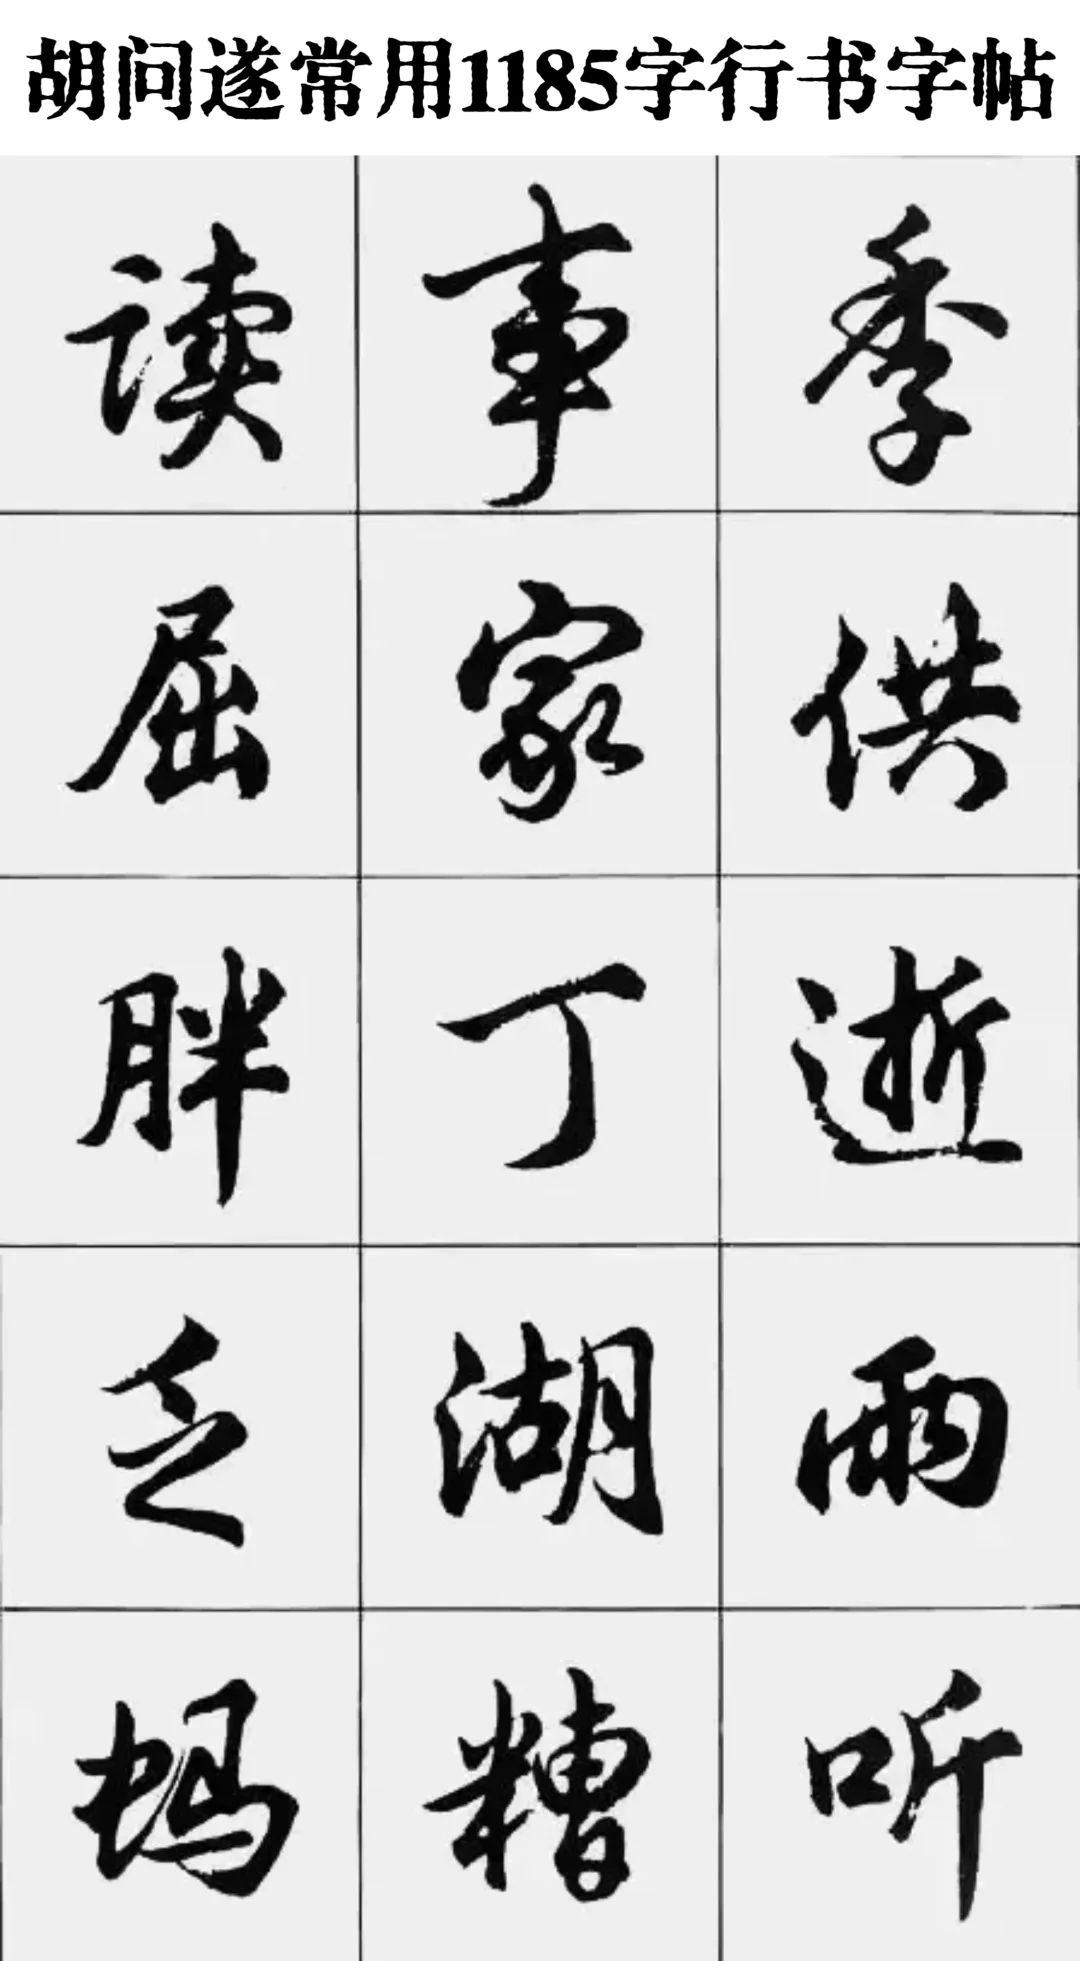 胡问遂常用1185字行书字帖
读事季
屈家供
胖丁逝
乏湖雨
蚂糟听